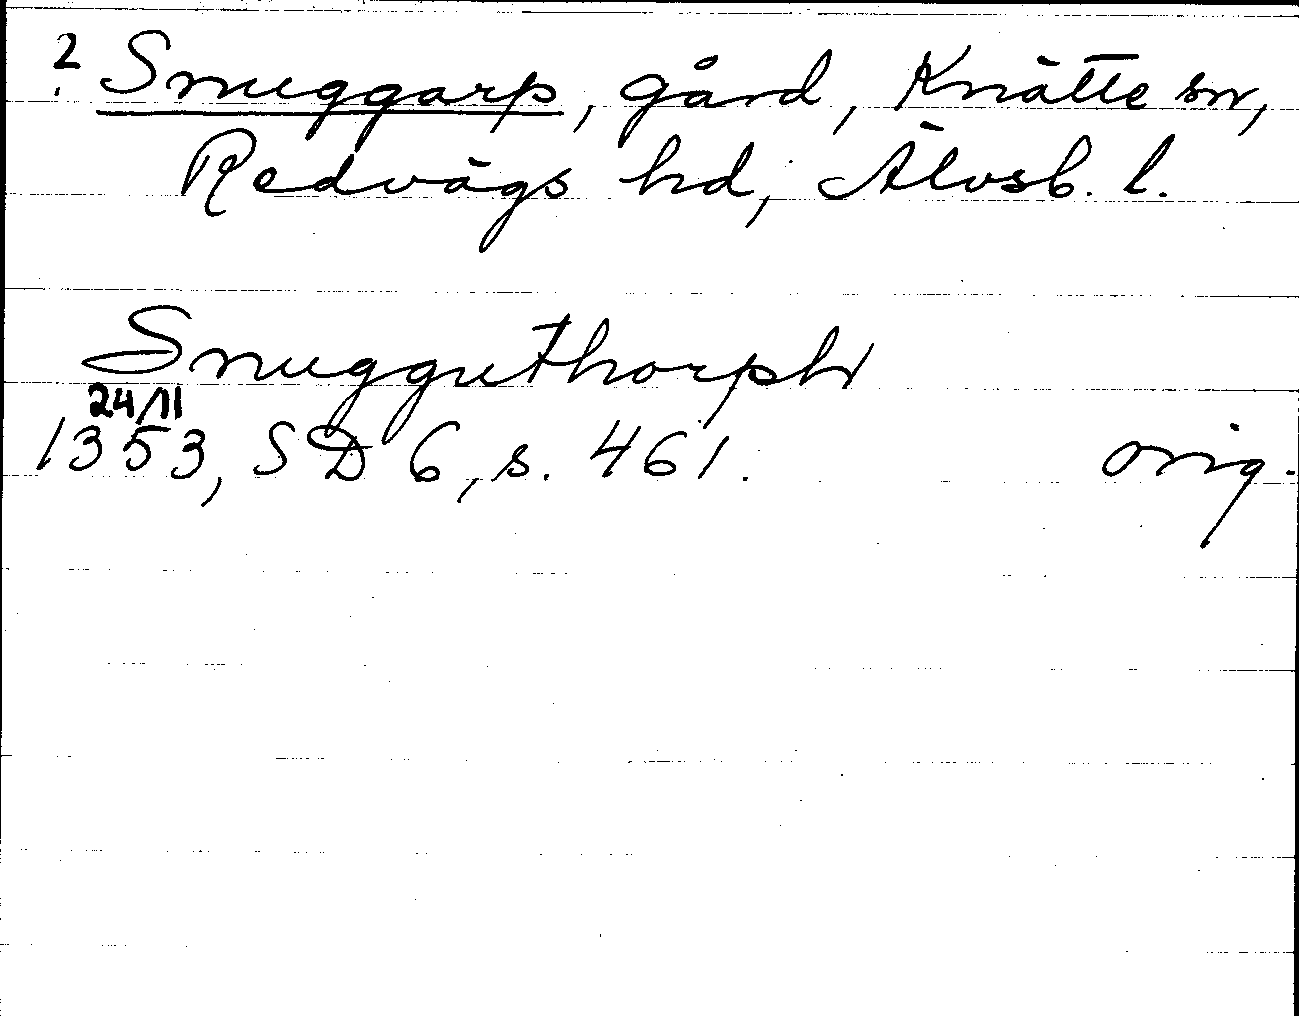 ? Snuggarp, gård, Knätte sn,
Redvägs hd, Älvsb. l.
Snugguthorph
24/11
1353, SD 6, s. 461. orig.